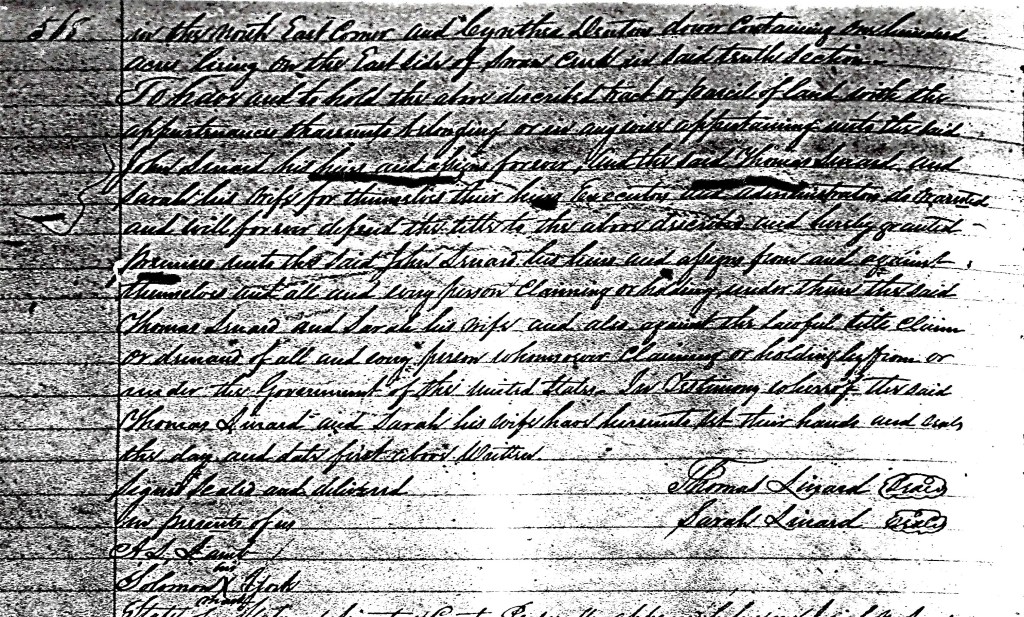 565 in the North East Corner and Cynthia Dentons dower Containing one hundred
acres lieing on the East side of Swan Creek in said tenth section
To have and to hold the above described tract or parcel of land with the
appurtenances thereunto belonging or in any wise appertaining unto the said
John Lenard his heirs and assigns forever, and the said Thomas Linard and
Sarah his Wife for themselves their heirs Executors and administrators do warrited
and will forever defend the title to the above discribed and hereby granted
Premises unto the said John Lenard his heirs and assigns from and against
themselves and all and every person Claiming or holding under them the said
Thomas Lenard and Sarah his Wife and also against the lawful title Claim
or demand of all and every person whomsoever Claiming or holding by from or
under the Government of the United States. In Testimony whereof the said
Thomas Linard and Sarah his Wife have hereunto set their hands and seals
the day and date first above Written
Signed sealed and delivered Thomas Linard (Seal)
in presents of us Sarah Linard (Seal)
A. S. Lamb
his
Solomon X York
mark
State of